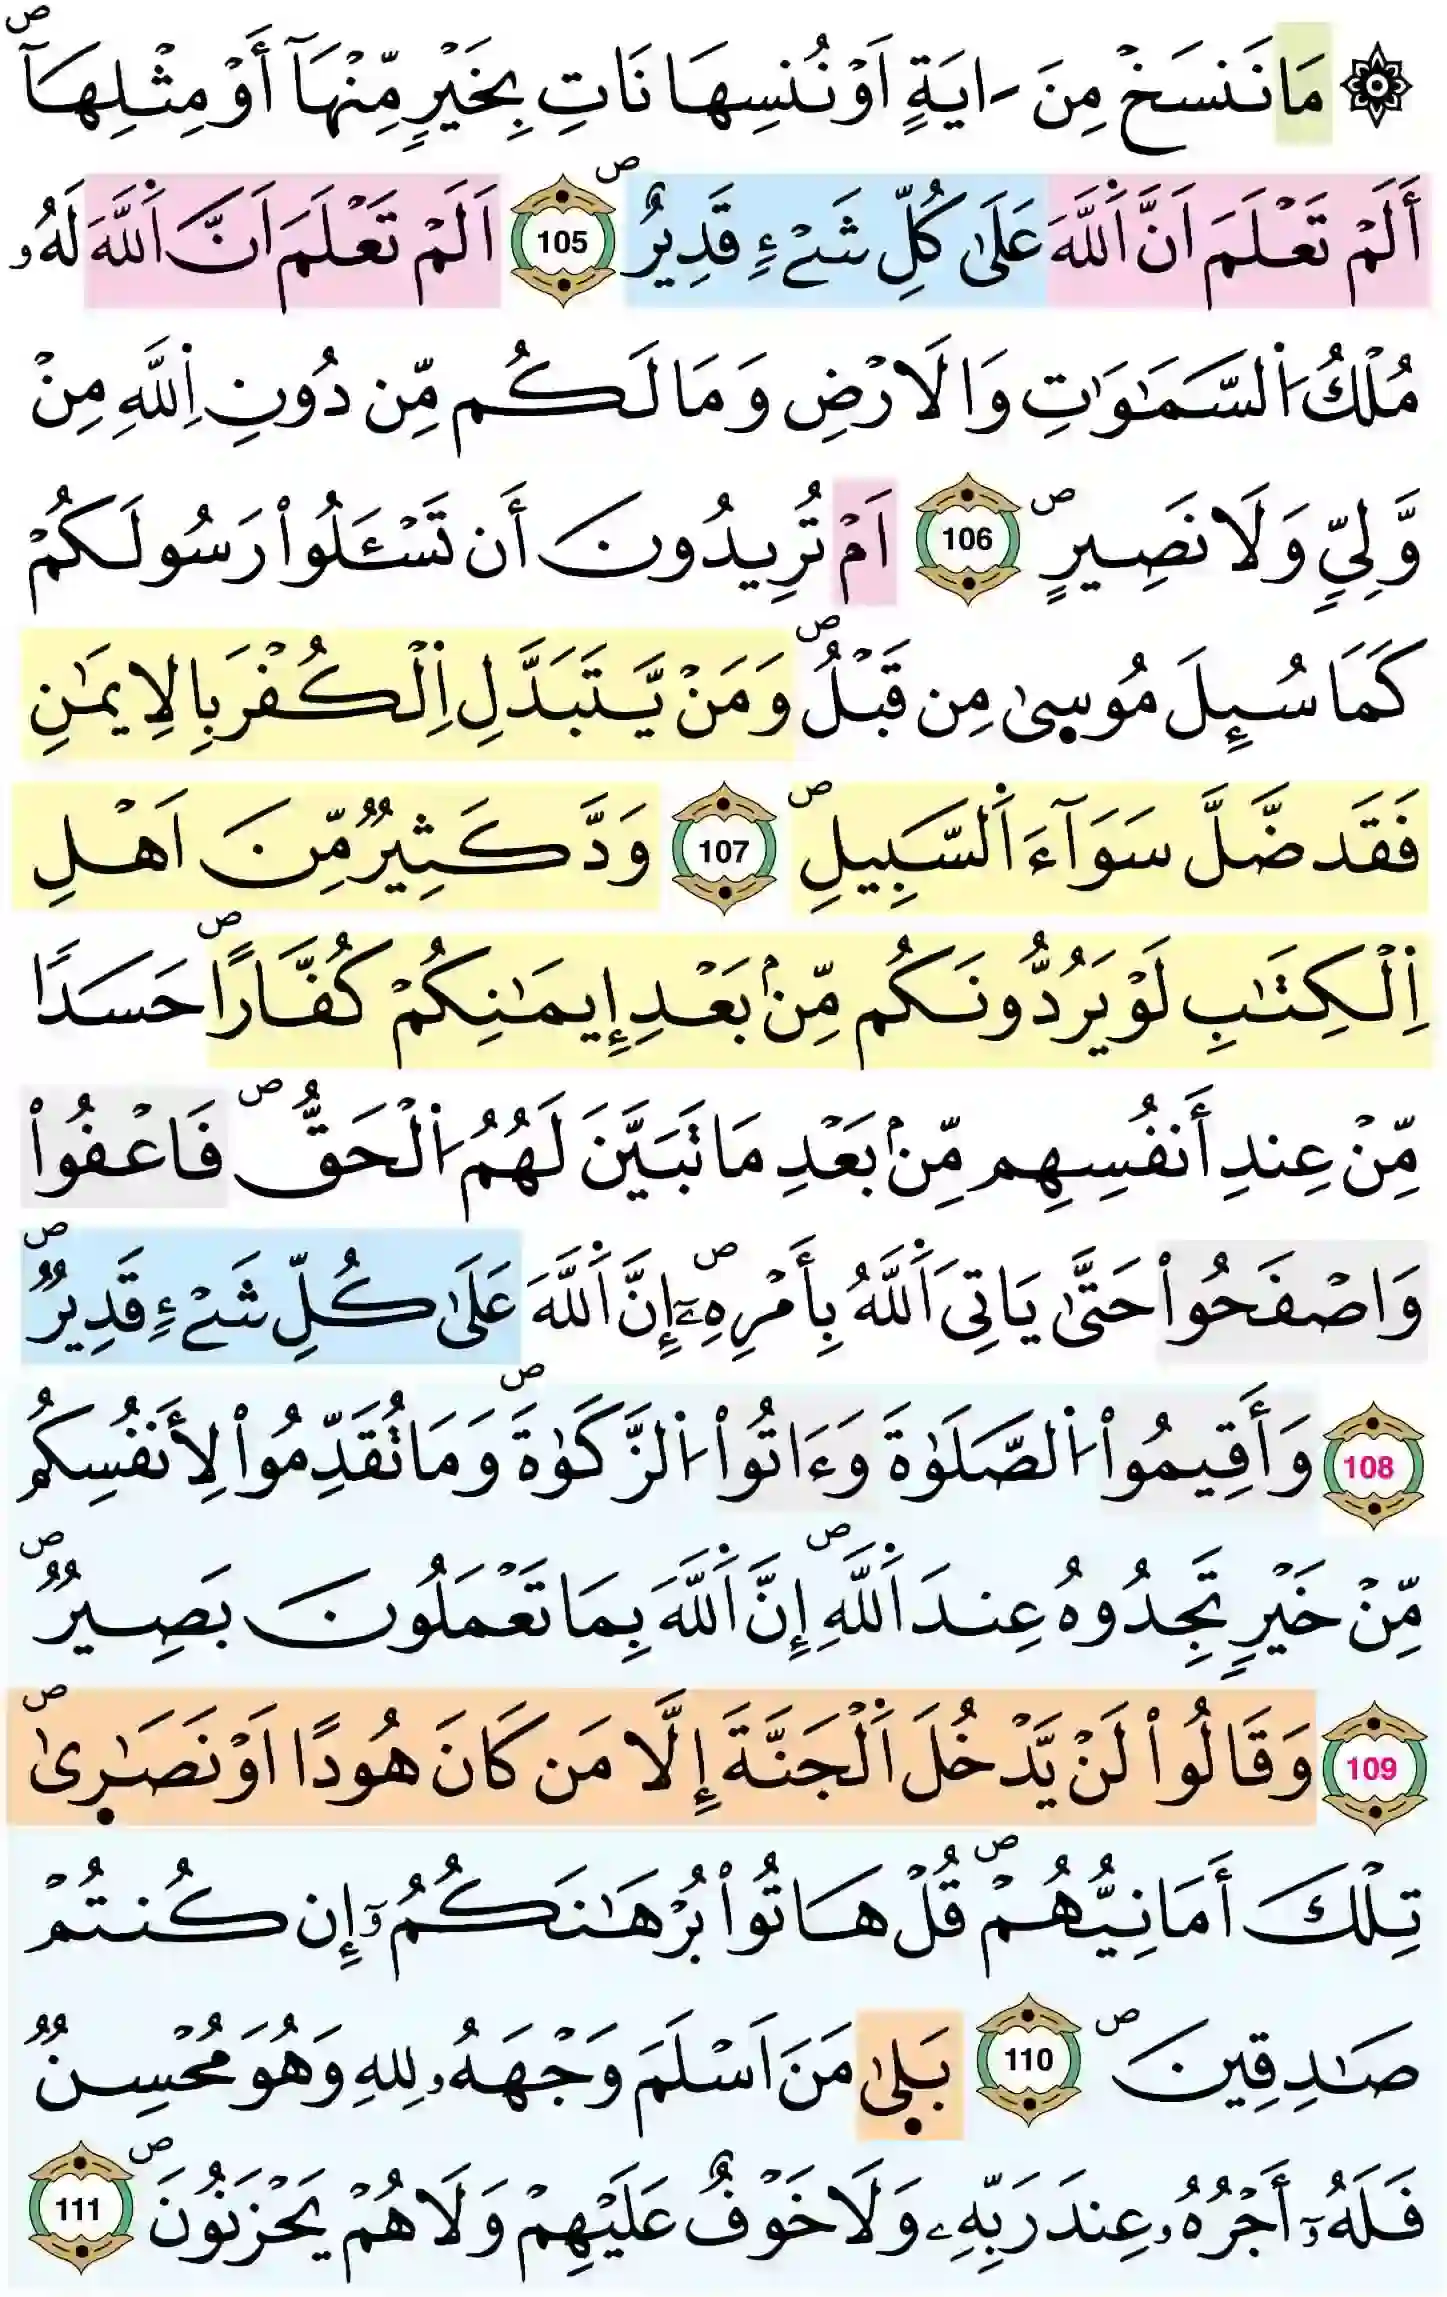 ۞ مَا نَنسَخْ مِنَ اٰيَةٍ اَوْ نُنسِهَا نَاتِ بِخَيْرٍ مِّنْهَآ أَوْ مِثْلِهَآ ص
أَلَمْ تَعْلَمَ اَنَّ اَ۬للَّهَ عَلَىٰ كُلِّ شَےْءٖ قَدِيرٌ ص 105 اَلَمْ تَعْلَمَ اَنَّ اَ۬للَّهَ لَهُۥ
مُلْكُ اُ۬لسَّمَٰوَٰتِ وَالَارْضِ وَمَا لَكُم مِّن دُونِ اِ۬للَّهِ مِنْ
وَّلِيّٖ وَلَا نَصِيرٍ ص 106 اَمْ تُرِيدُونَ أَن تَسْـَٔلُواْ رَسُولَكُمْ
كَمَا سُئِلَ مُوس۪ىٰ مِن قَبْلُ ص وَمَنْ يَّتَبَدَّلِ اِ۬لْكُفْرَ بِالِايمَٰنِ
فَقَد ضَّلَّ سَوَآءَ اَ۬لسَّبِيلِ ص 107 وَدَّ كَثِيرٌ مِّنَ اَهْلِ
اِ۬لْكِتَٰبِ لَوْ يَرُدُّونَكُم مِّنۢ بَعْدِ إِيمَٰنِكُمْ كُفَّارًا ص حَسَدًا
مِّنْ عِندِ أَنفُسِهِم مِّنۢ بَعْدِ مَا تَبَيَّنَ لَهُمُ اُ۬لْحَقُّ ص فَاعْفُواْ
وَاصْفَحُواْ حَتَّىٰ يَاتِىَ اَ۬للَّهُ بِأَمْرِهِۦٓ ص إِنَّ اَ۬للَّهَ عَلَىٰ كُلِّ شَےْءٖ قَدِيرٌ ص
108 وَأَقِيمُواْ اُ۬لصَّلَوٰةَ وَءَاتُواْ اُ۬لزَّكَوٰةَ ص وَمَا تُقَدِّمُواْ لِأَنفُسِكُم
مِّنْ خَيْرٖ تَجِدُوهُ عِندَ اَ۬للَّهِ ص إِنَّ اَ۬للَّهَ بِمَا تَعْمَلُونَ بَصِيرٌ ص
109 وَقَالُواْ لَنْ يَّدْخُلَ اَ۬لْجَنَّةَ إِلَّا مَن كَانَ هُودًا اَوْ نَصَٰر۪ىٰ ص
تِلْكَ أَمَانِيُّهُمْ ص قُلْ هَاتُواْ بُرْهَٰنَكُمُۥٓ إِن كُنتُمْ
صَٰدِقِينَ ص 110 بَل۪ىٰ مَنَ اَسْلَمَ وَجْهَهُۥ لِلهِ وَهُوَ مُحْسِنٌ
فَلَهُۥٓ أَجْرُهُۥ عِندَ رَبِّهِۦ وَلَا خَوْفٌ عَلَيْهِمْ وَلَا هُمْ يَحْزَنُونَ ص 111